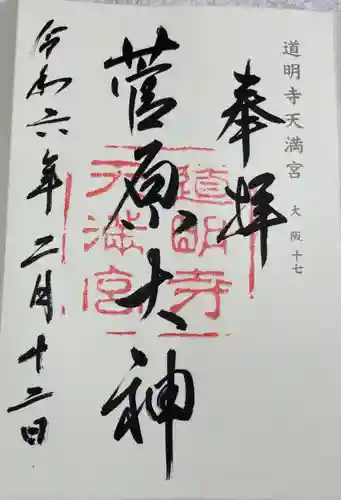 道明寺天満宮 大阪十七
奉拝
道明寺
天満宮
菅原大神
令和六年二月十二日